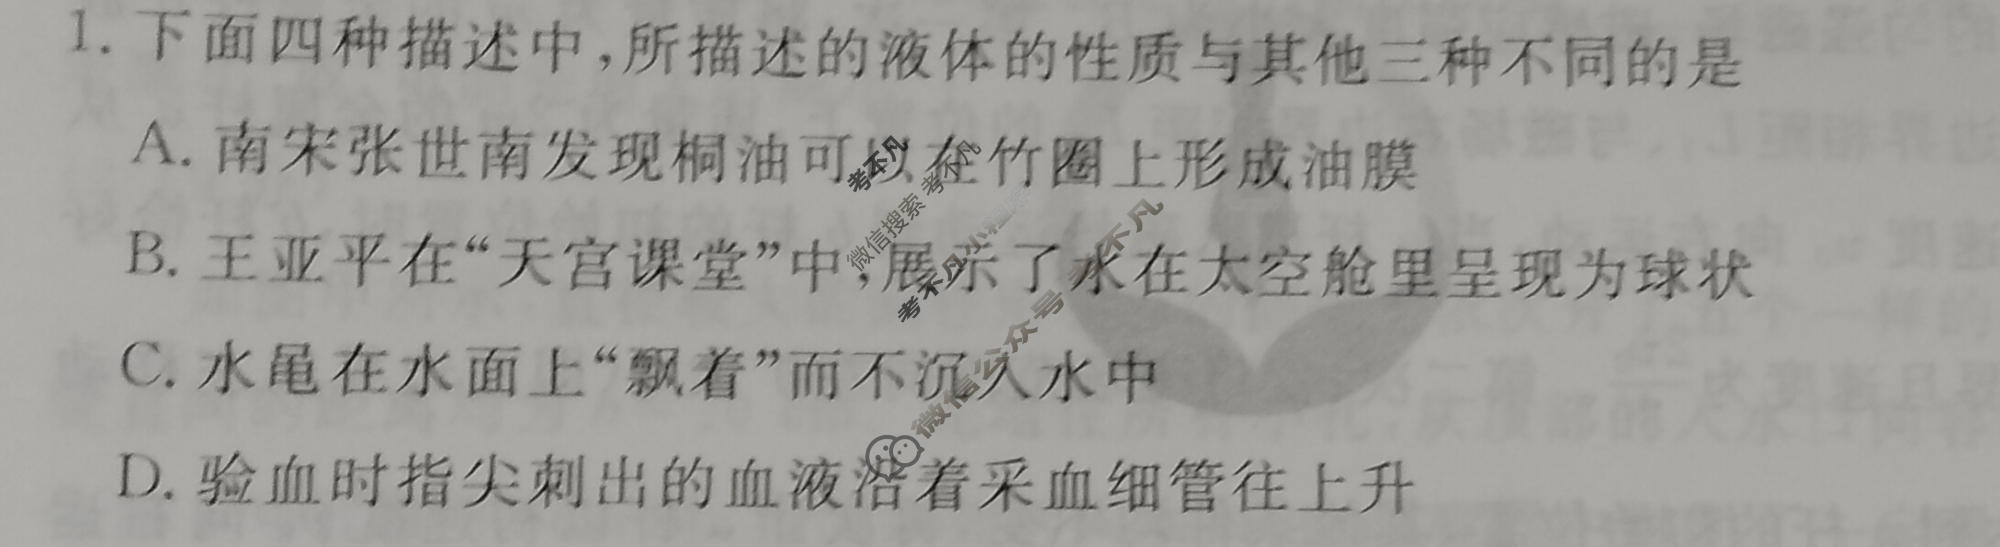 1. 下面四种描述中,所描述的液体的性质与其他三种不同的是
A. 南宋张世南发现桐油可以在竹圈上形成油膜
B. 王亚平在“天宫课堂”中,展示了水在太空舱里呈现为球状
C. 水黾在水面上“飘着”而不沉入水中
D. 验血时指尖刺出的血液沿着采血细管往上升
考不凡
微信搜索 考不凡
考不凡小程序
微信公众号 考不凡